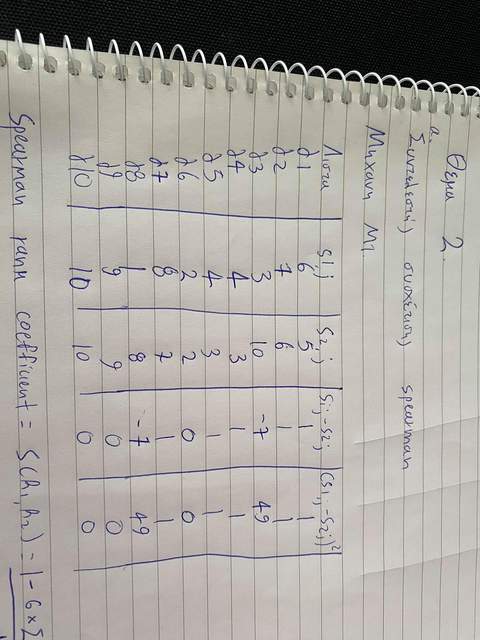 Θεμα 2.
α. Συντελεστής συσχέτισης spearman
Μηχανη M1
Λιστα S1,j S2,j S1,j-S2,j (S1,j-S2,j)²
d1 6 5 1 1
d2 7 6 1 1
d3 3 10 -7 49
d4 4 3 1 1
d5 4 3 1 1
d6 2 2 0 0
d7 8 7 1 1
d8 1 8 -7 49
d9 9 9 0 0
d10 10 10 0 0
Spearman rank coefficient = S(h1,h2) = 1-6×Σ